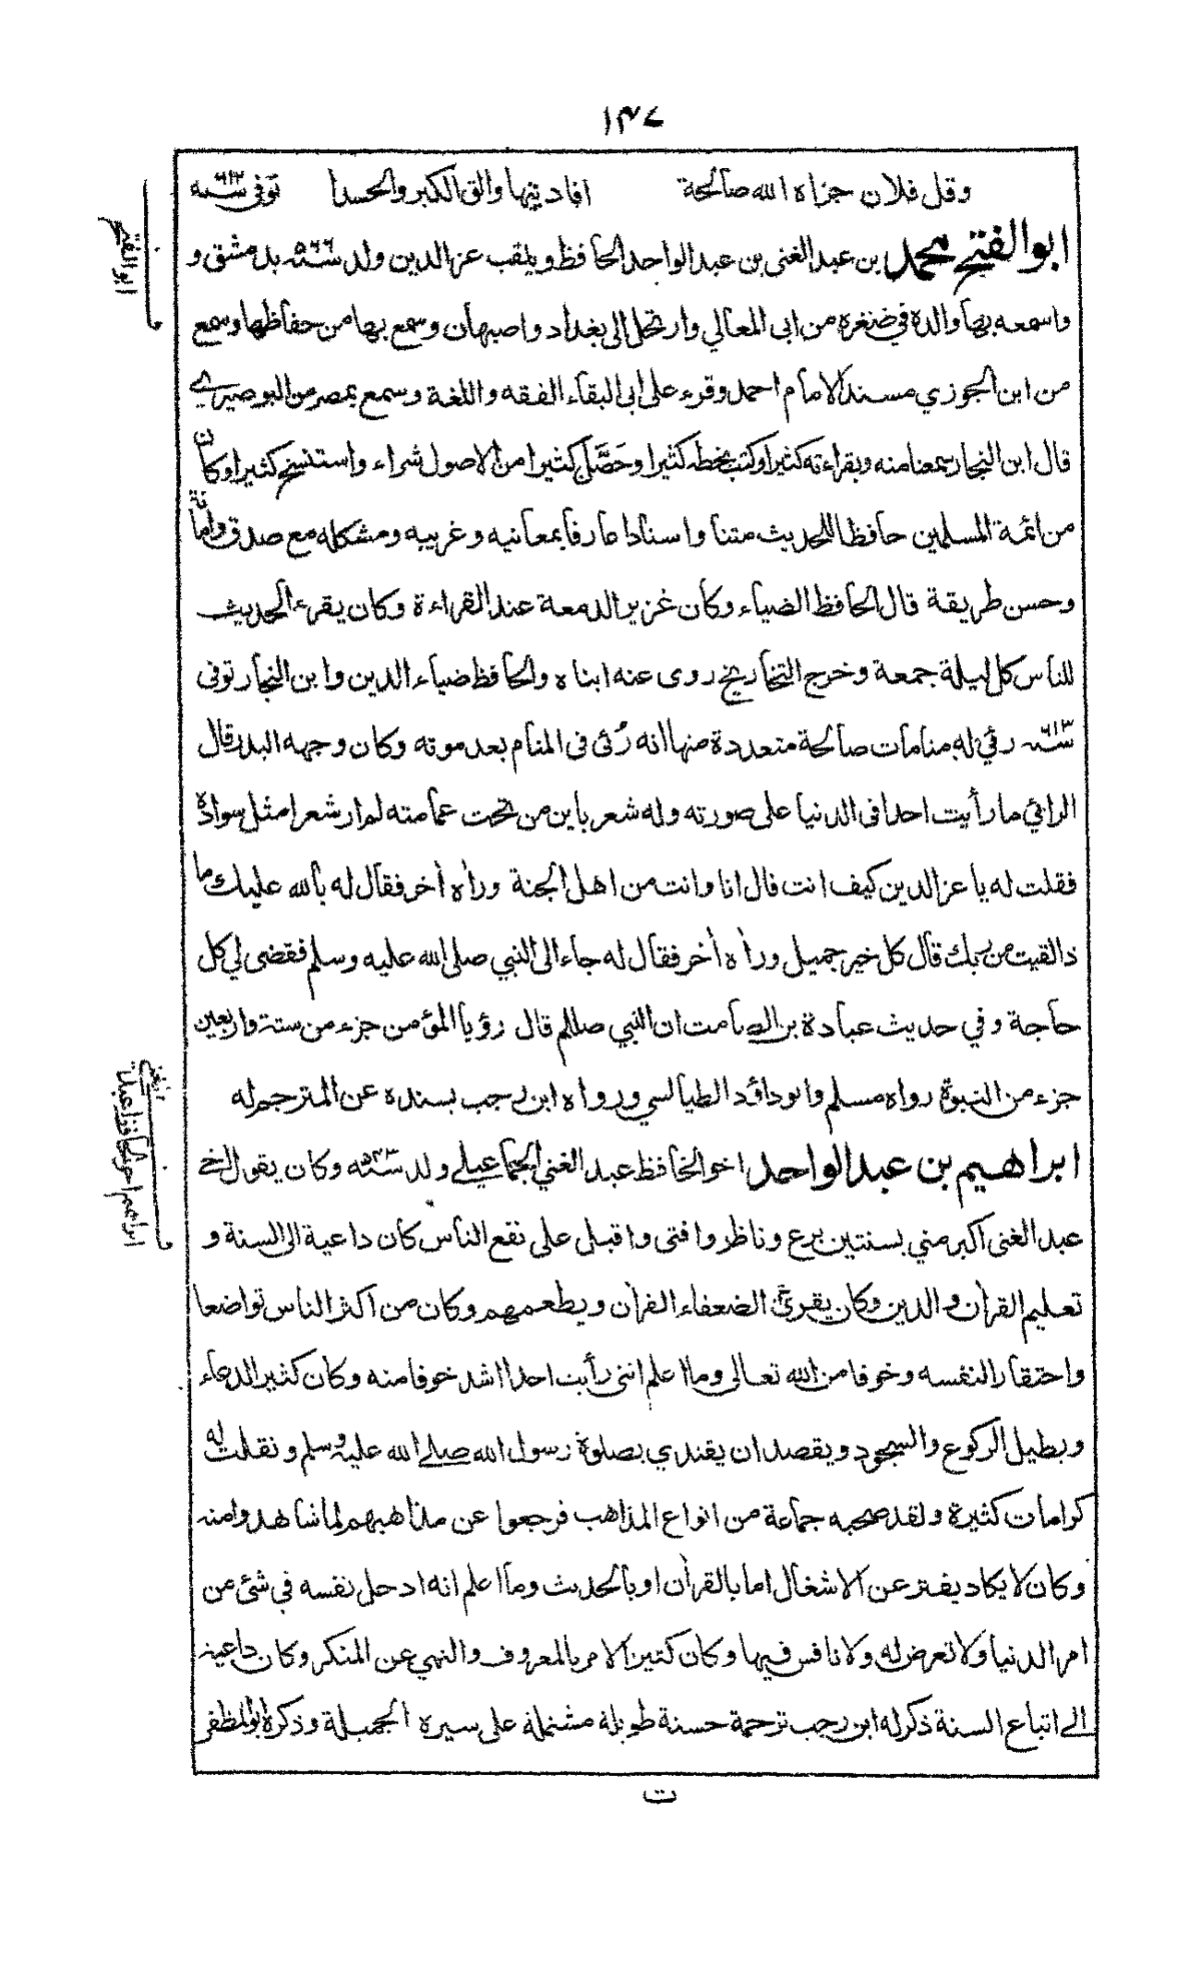 ١٤٧
وقل فلان جزاه الله صالحة افادنيها والق الكبر والحسدا توفى سنة ٦١٣
ابو الفتح محمد بن عبد الغنى بن عبد الواحد الحافظ ويلقب عز الدين ولد سنة ٥٦٦ بدمشق و
واسمعه بها والده في صغره من ابى المعالي وارتحل الى بغداد واصبهان وسمع بها من حفاظها وسمع
من ابن الجوزي مسند الامام احمد وقرء على ابى البقاء الفقه واللغة وسمع بمصر من البوصيرے
قال ابن النجار سمعنا منه وبقراءته كثيرا وكتب بخطه كثيرا وحَصَّل كثيرا من الاصول شراء واستنسخ كثيرا وكان
من ائمة المسلمين حافظا للحديث متنا واسنادا عارفا بمعانيه وغريبه ومشكله مع صدق وامانة
وحسن طريقة قال الحافظ الضياء وكان غزير الدمعة عند القراءة وكان يقرء الحديث
للناس كل ليلة جمعة وخرج التخاريج روى عنه ابناه والحافظ ضياء الدين وابن النجار توفى
سنة ٦١٣ رؤي له منامات صالحة متعددة منها انه رُئى فى المنام بعد موته وكان وجهه البدر قال
الرائي ما رأيت احدا فى الدنيا على صورته وله شعر باين من تحت عمامته لم ار شعرا مثل سواده
فقلت له يا عز الدين كيف انت قال انا وانت من اهل الجنة وراٰه اٰخر فقال له بالله عليك ما
ذا لقيت من ربك قال كل خير جميل وراٰه اٰخر فقال له جاء الى النبي صلى الله عليه وسلم فقضى لي كل
حاجة وفي حديث عبادة بن الصامت ان النبي صللم قال رؤيا المؤمن جزء من ستة واربعين
جزء من النبوة رواه مسلم وابو داؤد الطيالسي ورواه ابن رجب بسنده عن المترجم له
ابراهيم بن عبد الواحد اخو الحافظ عبد الغني الجماعيلے ولد سنة ٥٤٣ وكان يقول اخے
عبد الغنى اكبر مني بسنتين برع وناظر وافتى واقبل على نفع الناس كان داعية الى السنة و
تعليم القراٰن والدين وكان يقرئ الضعفاء القراٰن ويطعمهم وكان من اكثر الناس تواضعا
واحتقارا لنفسه وخوفا من الله تعالى وما اعلم اننى رأيت احدا اشد خوفا منه وكان كثير الدعاء
ويطيل الركوع والسجود ويقصد ان يقتدي بصلوة رسول الله صلے الله عليه وسلم ونقلت له
كرامات كثيرة ولقد صحبه جماعة من انواع المذاهب فرجعوا عن مذاهبهم لما شاهدوا منه
وكان لا يكاد يفتر عن الاشغال اما بالقراٰن او بالحديث وما اعلم انه ادخل نفسه في شئ من
امر الدنيا ولا تعرض له ولا نافس فيها وكان كثير الامر بالمعروف والنهي عن المنكر وكان داعية
الے اتباع السنة ذكر له ابن رجب ترجمة حسنة طويلة مشتملة على سيره الجميلة وذكره ابو المظفر
ت
ابو الفتح
ابراهيم اخو الحافظ عبد الغنى